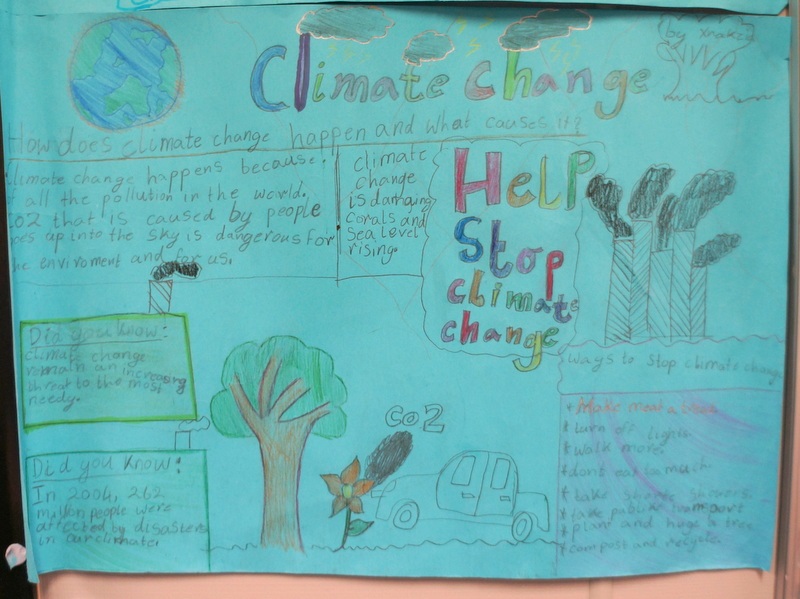 Climate change
by
How does climate change happen and what causes it?
climate change happens because
all the pollution in the world.
CO2 that is caused by people
goes up into the sky is dangerous for
the enviroment and for us.
climate
change
is damaging
corals and
sea level
rising.
Help
Stop
climate
change
Did you know:
climate change
remain an increasing
threat to the most
needy.
Did you know:
In 2004, 262
million people were
affected by disasters
in our climate.
CO2
ways to stop climate change
* Make meat a
* turn off lights
* walk more.
* dont eat to much.
* take shorter showers.
* take public transport
* plant and huge a tree
* compost and recycle.